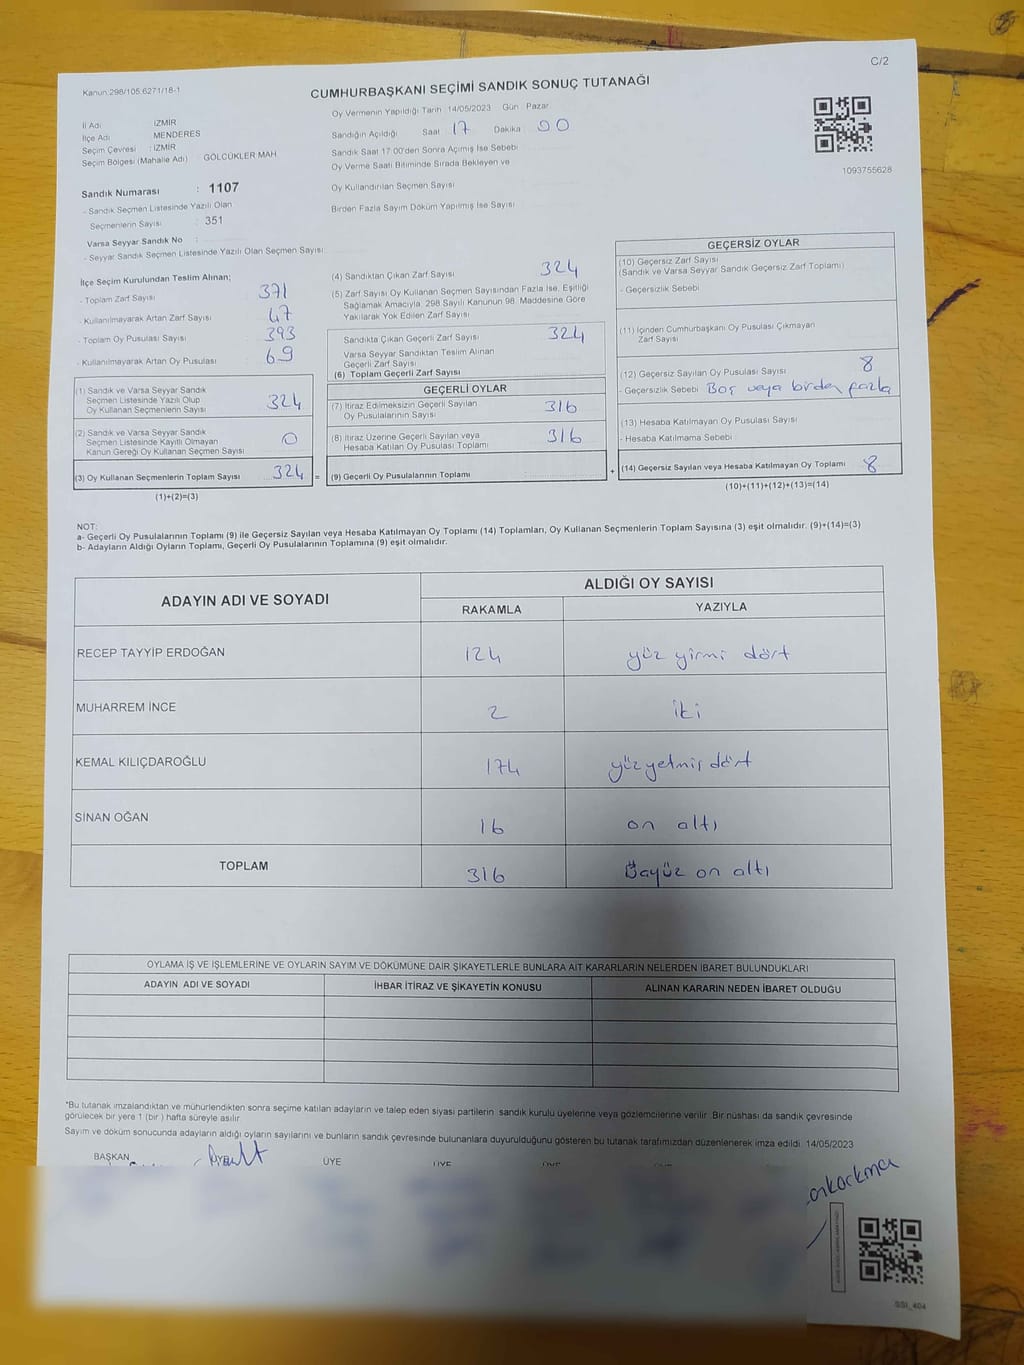 C/2
Kanun:298/105;6271/18-1
CUMHURBAŞKANI SEÇİMİ SANDIK SONUÇ TUTANAĞI
İl Adı : İZMİR
İlçe Adı : MENDERES
Seçim Çevresi : İZMİR
Seçim Bölgesi (Mahalle Adı) : GÖLCÜKLER MAH
Sandık Numarası : 1107
- Sandık Seçmen Listesinde Yazılı Olan
Seçmenlerin Sayısı : 351
Varsa Seyyar Sandık No :
- Seyyar Sandık Seçmen Listesinde Yazılı Olan Seçmen Sayısı:
Oy Vermenin Yapıldığı Tarih 14/05/2023 Gün Pazar
Sandığın Açıldığı Saat 17 Dakika 00
Sandık Saat 17:00'den Sonra Açılmış İse Sebebi
Oy Verme Saati Bitiminde Sırada Bekleyen ve
Oy Kullandırılan Seçmen Sayısı
Birden Fazla Sayım Döküm Yapılmış İse Sayısı
1093755628
İlçe Seçim Kurulundan Teslim Alınan;
- Toplam Zarf Sayısı 371
- Kullanılmayarak Artan Zarf Sayısı 47
- Toplam Oy Pusulası Sayısı 393
- Kullanılmayarak Artan Oy Pusulası 69
(1) Sandık ve Varsa Seyyar Sandık
Seçmen Listesinde Yazılı Olup
Oy Kullanan Seçmenlerin Sayısı 324
(2) Sandık ve Varsa Seyyar Sandık
Seçmen Listesinde Kayıtlı Olmayan
Kanun Gereği Oy Kullanan Seçmen Sayısı 0
(3) Oy Kullanan Seçmenlerin Toplam Sayısı 324 =
(1)+(2)=(3)
(4) Sandıktan Çıkan Zarf Sayısı 324
(5) Zarf Sayısı Oy Kullanan Seçmen Sayısından Fazla İse, Eşitliği
Sağlamak Amacıyla, 298 Sayılı Kanunun 98. Maddesine Göre
Yakılarak Yok Edilen Zarf Sayısı
Sandıkta Çıkan Geçerli Zarf Sayısı 324
Varsa Seyyar Sandıktan Teslim Alınan
Geçerli Zarf Sayısı
(6) Toplam Geçerli Zarf Sayısı
GEÇERLİ OYLAR
(7) İtiraz Edilmeksizin Geçerli Sayılan
Oy Pusulalarının Sayısı 316
(8) İtiraz Üzerine Geçerli Sayılan veya
Hesaba Katılan Oy Pusulası Toplamı 316
(9) Geçerli Oy Pusulalarının Toplamı +
GEÇERSİZ OYLAR
(10) Geçersiz Zarf Sayısı
(Sandık ve Varsa Seyyar Sandık Geçersiz Zarf Toplamı)
- Geçersizlik Sebebi
(11) İçinden Cumhurbaşkanı Oy Pusulası Çıkmayan
Zarf Sayısı
(12) Geçersiz Sayılan Oy Pusulası Sayısı 8
- Geçersizlik Sebebi Boş veya birden fazla
(13) Hesaba Katılmayan Oy Pusulası Sayısı
- Hesaba Katılmama Sebebi
(14) Geçersiz Sayılan veya Hesaba Katılmayan Oy Toplamı 8
(10)+(11)+(12)+(13)=(14)
NOT:
a- Geçerli Oy Pusulalarının Toplamı (9) ile Geçersiz Sayılan veya Hesaba Katılmayan Oy Toplamı (14) Toplamları, Oy Kullanan Seçmenlerin Toplam Sayısına (3) eşit olmalıdır. (9)+(14)=(3)
b- Adayların Aldığı Oyların Toplamı, Geçerli Oy Pusulalarının Toplamına (9) eşit olmalıdır.
ADAYIN ADI VE SOYADI
ALDIĞI OY SAYISI
RAKAMLA YAZIYLA
RECEP TAYYİP ERDOĞAN 124 yüz yirmi dört
MUHARREM İNCE 2 iki
KEMAL KILIÇDAROĞLU 174 yüzyetmiş dört
SİNAN OĞAN 16 on altı
TOPLAM 316 on altı
OYLAMA İŞ VE İŞLEMLERİNE VE OYLARIN SAYIM VE DÖKÜMÜNE DAİR ŞİKAYETLERLE BUNLARA AİT KARARLARIN NELERDEN İBARET BULUNDUKLARI
ADAYIN ADI VE SOYADI İHBAR İTİRAZ VE ŞİKAYETİN KONUSU ALINAN KARARIN NEDEN İBARET OLDUĞU
*Bu tutanak imzalandıktan ve mühürlendikten sonra seçime katılan adayların ve talep eden siyasi partilerin sandık kurulu üyelerine veya gözlemcilerine verilir. Bir nüshası da sandık çevresinde
görülecek bir yere 1 (bir) hafta süreyle asılır.
Sayım ve döküm sonucunda adayların aldığı oyların sayılarını ve bunların sandık çevresinde bulunanlara duyurulduğunu gösteren bu tutanak tarafımızdan düzenlenerek imza edildi. 14/05/2023
BAŞKAN ÜYE ÜYE
SSI_404